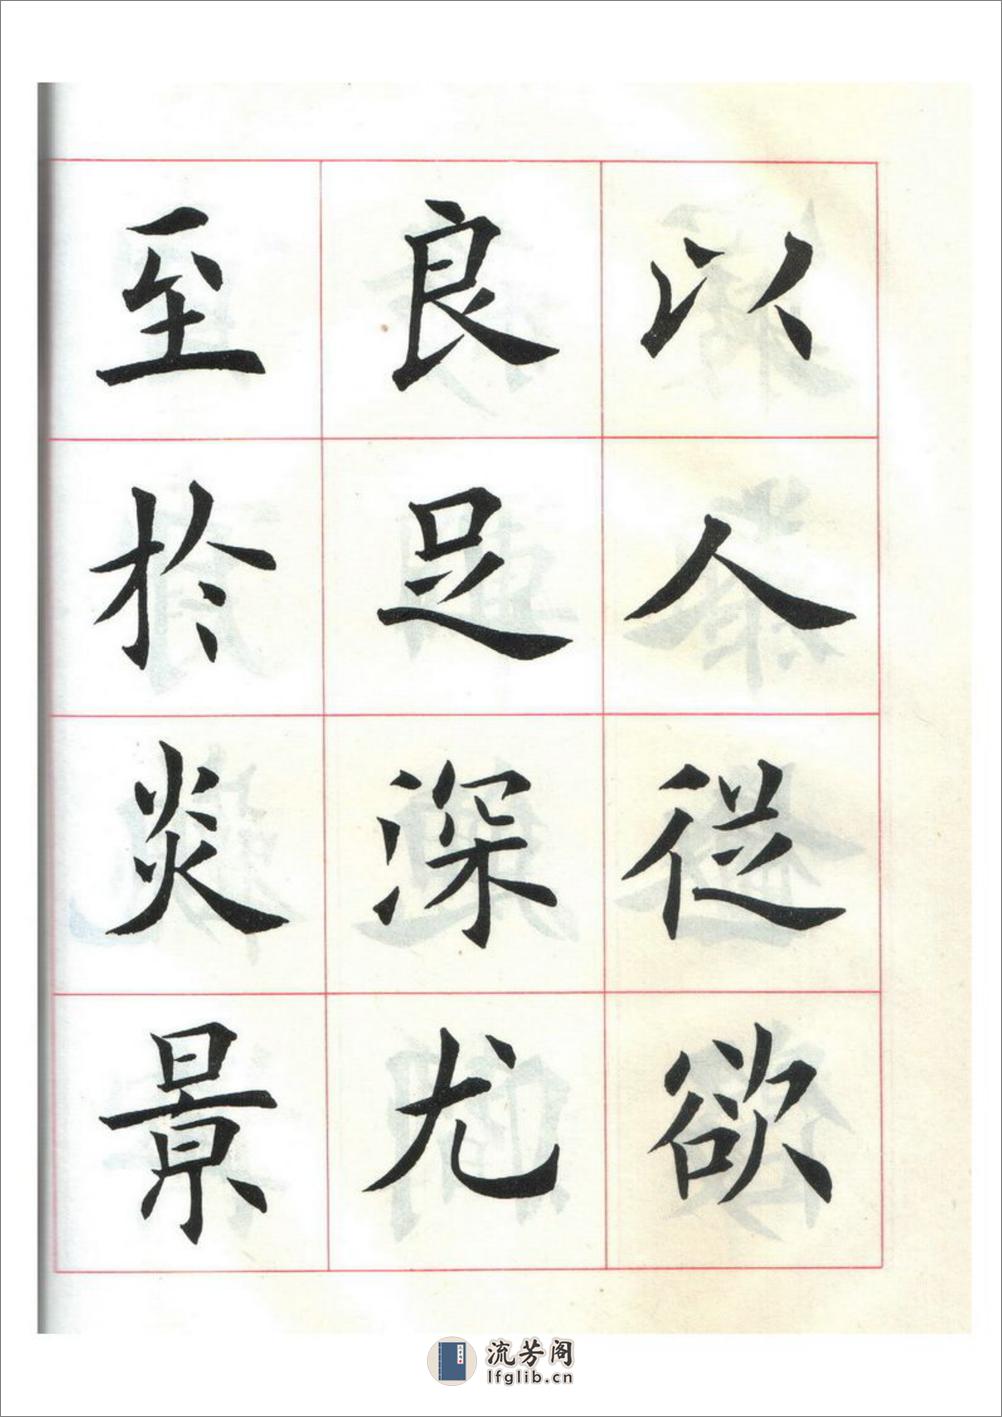 以人從欲
良足深尤
至於炎景
流芳阁
lfglib.cn